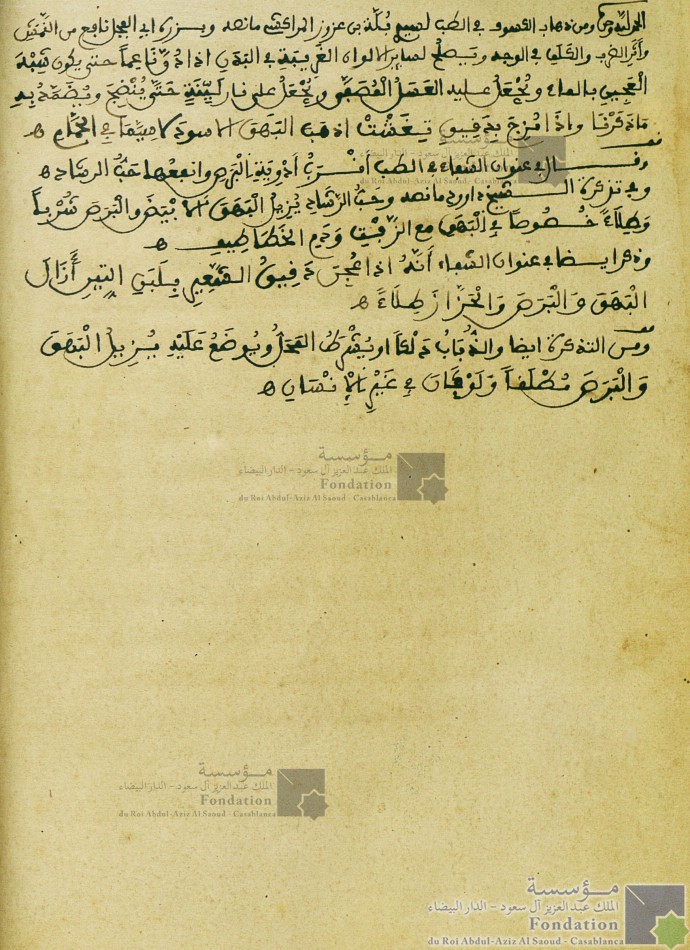 الحمد لله ومن ذهاب الكسوف في الطب لسيدي عبد الله بن عزوز المراكشي ما نصه وبزره اي الفجل نافع من النمش
واثر الضرب والكلف في الوجه ويصلح لسائر الالوان الغريبة في البدن اذا دُقّ ناعماً حتى يكون شبْهَ
الْعَجين بالماء ويُجْعل عليه العسل الْمُصَفَّى ويُجْعَل على نار ليّنة حتى يُنْضج ويُضَمَّد به
ما ذكرنا واذا مُزِجَ بدقيق اذهب البَهَق الاسود لا سيما في الحمّام ه
وقال في عنوان الشفاء في الطب أدْوِية البرص وانفعها حَبُّ الرشاد ه
وفي تذكرة الشيخ داود ما نصه وحبُّ الرّشاد يُزيل البَهَق الابْيَض والبَرَص شُرْباً
وَطِلَاءً خُصُوصاً في الْبَهَق مع الزّفْت ودم الخَطَاطيف ه
وذكر ايضا في عنوان الشفاء أنّهُ اذا عُجِنَ دَقيقُ الشعِير بِلَبَنِ التين أَزَالَ
البَهَق وَالْبَرَصَ وَالْحَزَازَ طِلَاءً ه
ومن التذكرة ايضا والذُّبَابُ دَلْكاً او يُشْرَطُ المحَلّ ويُوضَعُ عَلَيْهِ يُزيل الْبَهَقَ
وَالْبَرَصَ مُطْلَقاً وَلَوْ كَانَ في غَيْرِ الإنْسَان ه
مؤسسة
الملك عبد العزيز آل سعود - الدار البيضاء
Fondation
du Roi Abdul-Aziz Al Saoud - Casablanca
مؤسسة
الملك عبد العزيز آل سعود - الدار البيضاء
Fondation
du Roi Abdul-Aziz Al Saoud - Casablanca
مؤسسة
الملك عبد العزيز آل سعود - الدار البيضاء
Fondation
du Roi Abdul-Aziz Al Saoud - Casablanca